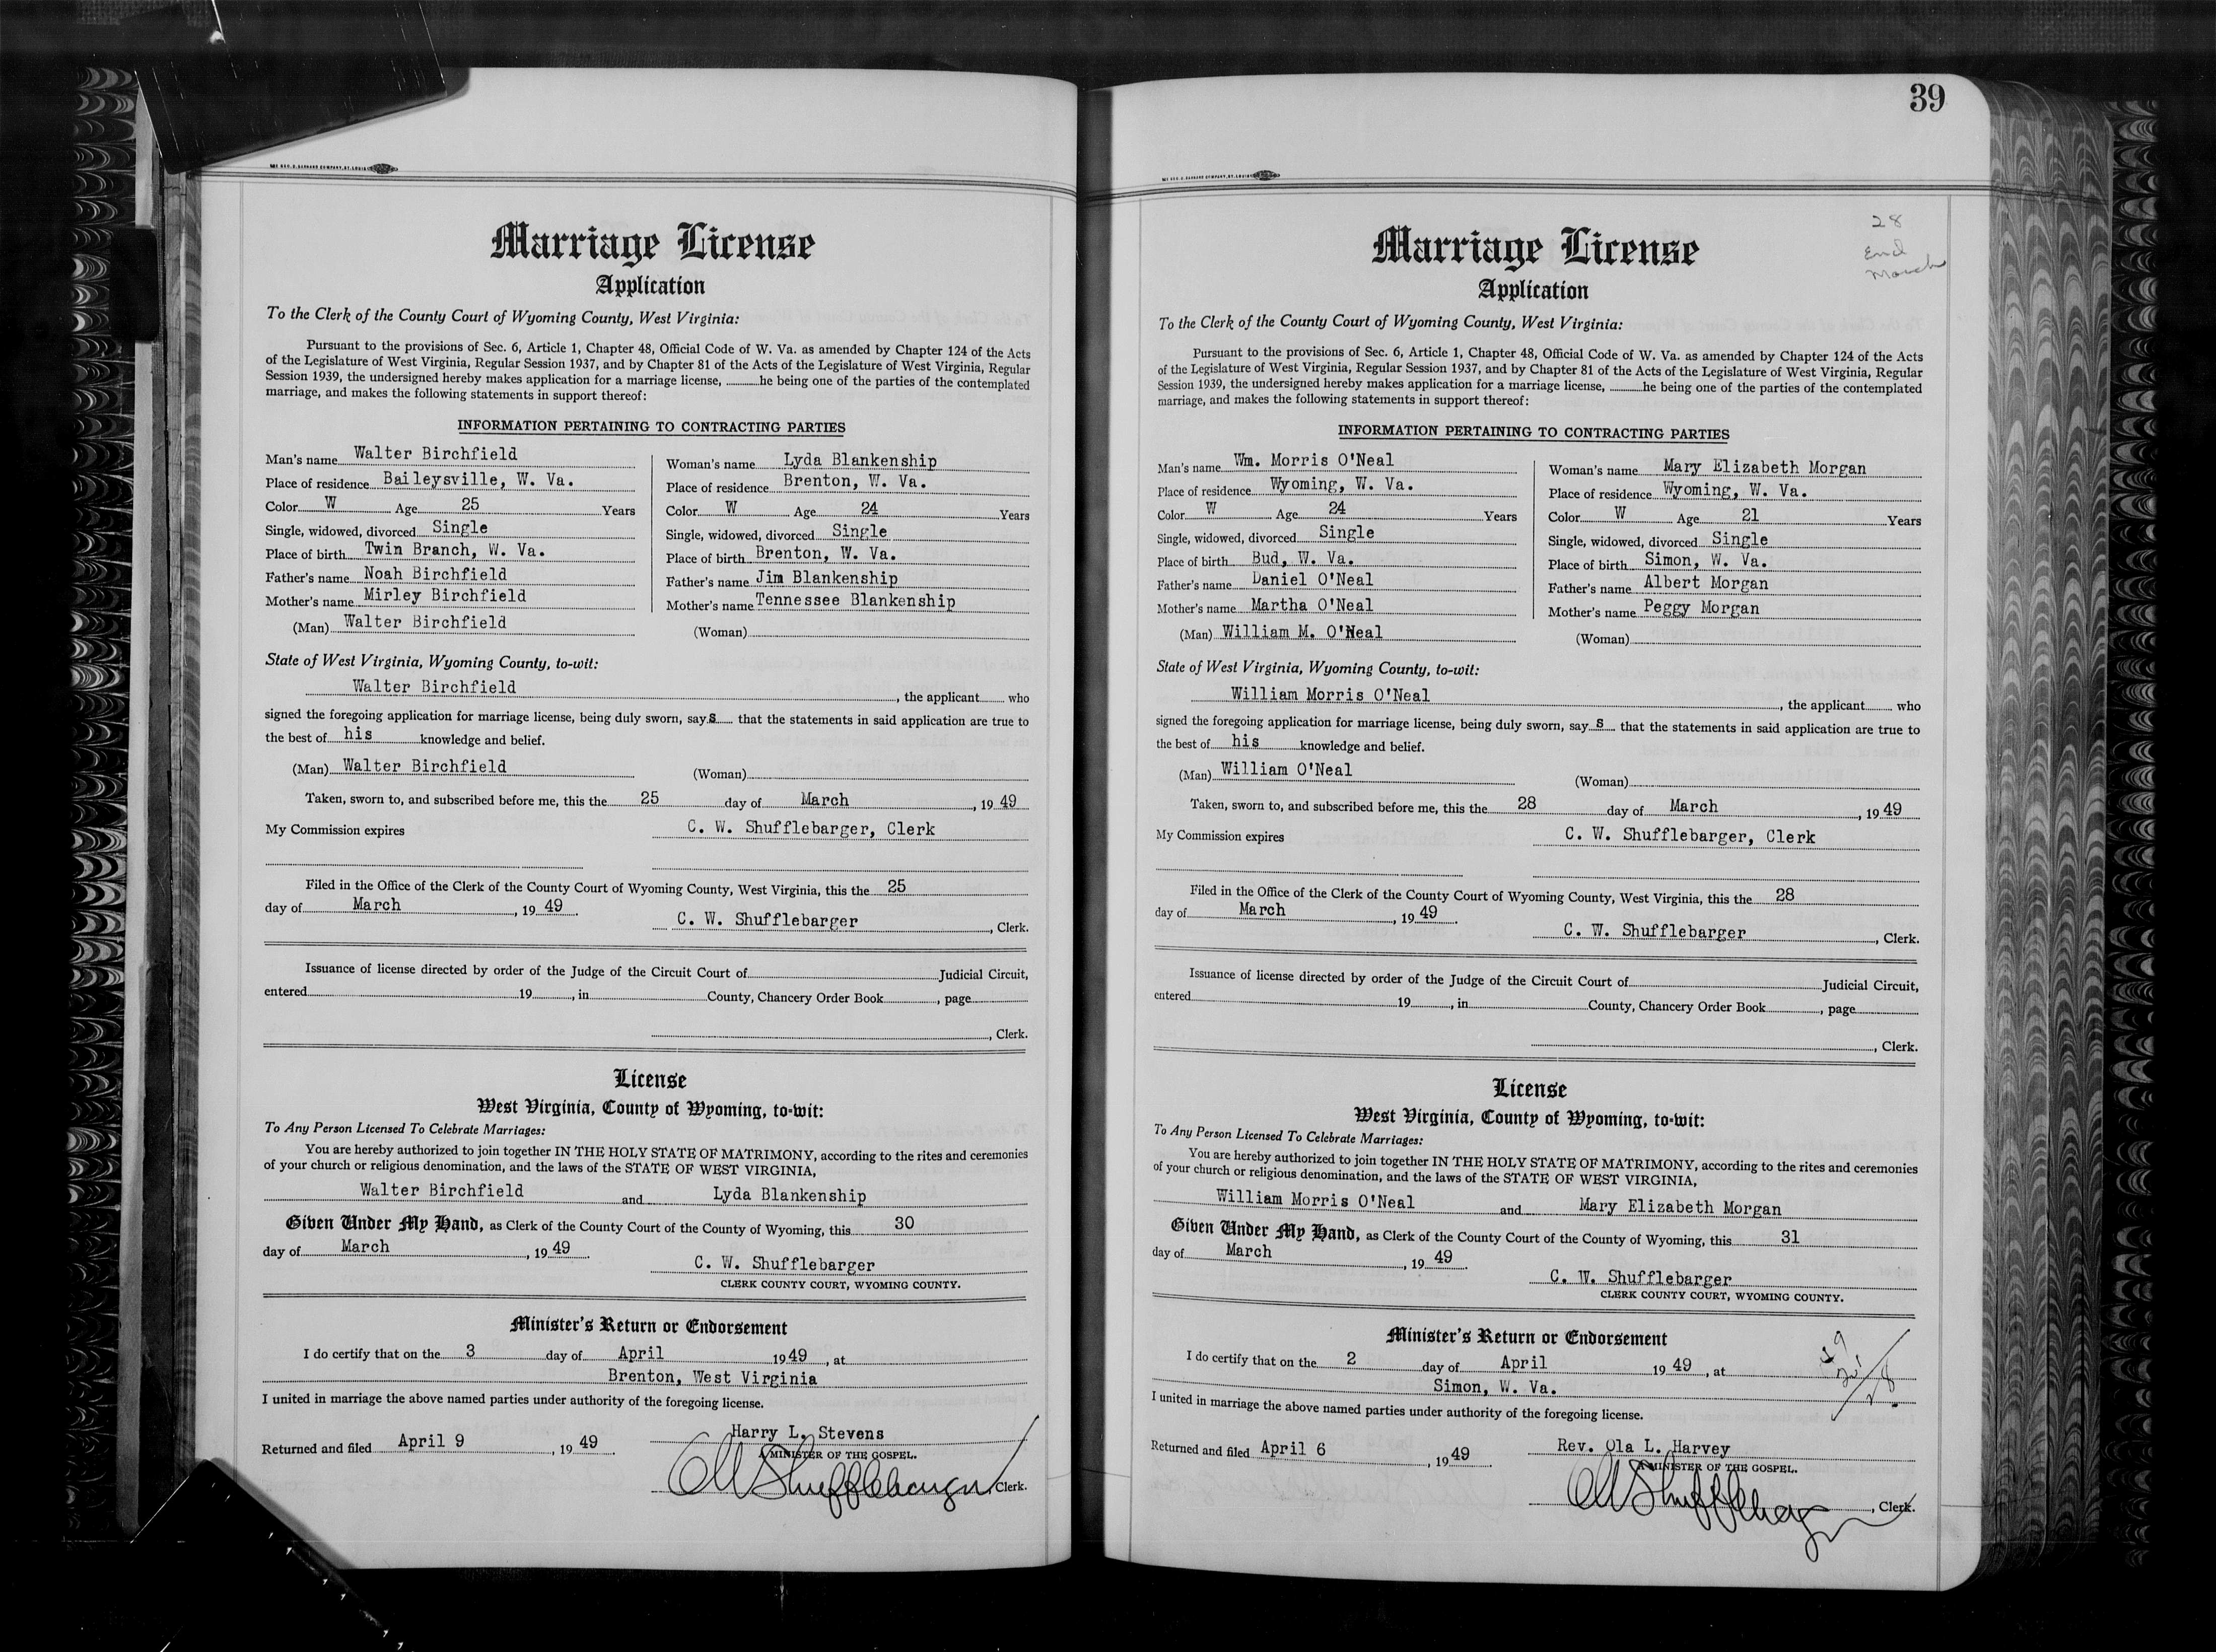 Marriage License
Application
To the Clerk of the County Court of Wyoming County, West Virginia:
Pursuant to the provisions of Sec. 6, Article 1, Chapter 48, Official Code of W. Va. as amended by Chapter 124 of the Acts
of the Legislature of West Virginia, Regular Session 1937, and by Chapter 81 of the Acts of the Legislature of West Virginia, Regular
Session 1939, the undersigned hereby makes application for a marriage license, ..........he being one of the parties of the contemplated
marriage, and makes the following statements in support thereof:
INFORMATION PERTAINING TO CONTRACTING PARTIES
Man's name Walter Birchfield
Place of residence Baileysville, W. Va.
Color W Age 25 Years
Single, widowed, divorced Single
Place of birth Twin Branch, W. Va.
Father's name Noah Birchfield
Mother's name Mirley Birchfield
(Man) Walter Birchfield
Woman's name Lyda Blankenship
Place of residence Brenton, W. Va.
Color W Age 24 Years
Single, widowed, divorced Single
Place of birth Brenton, W. Va.
Father's name Jim Blankenship
Mother's name Tennessee Blankenship
(Woman)
State of West Virginia, Wyoming County, to-wit:
Walter Birchfield, the applicant...... who
signed the foregoing application for marriage license, being duly sworn, say s that the statements in said application are true to
the best of his knowledge and belief.
(Man) Walter Birchfield (Woman)
Taken, sworn to, and subscribed before me, this the 25 day of March, 19 49
My Commission expires C. W. Shufflebarger, Clerk
Filed in the Office of the Clerk of the County Court of Wyoming County, West Virginia, this the 25
day of March, 19 49.
C. W. Shufflebarger, Clerk.
Issuance of license directed by order of the Judge of the Circuit Court of Judicial Circuit,
entered 19, in County, Chancery Order Book, page
, Clerk.
License
West Virginia, County of Wyoming, to-wit:
To Any Person Licensed To Celebrate Marriages:
You are hereby authorized to join together IN THE HOLY STATE OF MATRIMONY, according to the rites and ceremonies
of your church or religious denomination, and the laws of the STATE OF WEST VIRGINIA,
Walter Birchfield and Lyda Blankenship
Given Under My Hand, as Clerk of the County Court of the County of Wyoming, this 30
day of March, 19 49.
C. W. Shufflebarger
CLERK COUNTY COURT, WYOMING COUNTY.
Minister's Return or Endorsement
I do certify that on the 3 day of April 19 49, at
Brenton, West Virginia
I united in marriage the above named parties under authority of the foregoing license.
Harry L. Stevens
Returned and filed April 9, 19 49
A MINISTER OF THE GOSPEL.
CW Shufflebarger Clerk.
39
28
End
March
Marriage License
Application
To the Clerk of the County Court of Wyoming County, West Virginia:
Pursuant to the provisions of Sec. 6, Article 1, Chapter 48, Official Code of W. Va. as amended by Chapter 124 of the Acts
of the Legislature of West Virginia, Regular Session 1937, and by Chapter 81 of the Acts of the Legislature of West Virginia, Regular
Session 1939, the undersigned hereby makes application for a marriage license, ..........he being one of the parties of the contemplated
marriage, and makes the following statements in support thereof:
INFORMATION PERTAINING TO CONTRACTING PARTIES
Man's name Wm. Morris O'Neal
Place of residence Wyoming, W. Va.
Color W Age 24 Years
Single, widowed, divorced Single
Place of birth Bud, W. Va.
Father's name Daniel O'Neal
Mother's name Martha O'Neal
(Man) William M. O'Neal
Woman's name Mary Elizabeth Morgan
Place of residence Wyoming, W. Va.
Color W Age 21 Years
Single, widowed, divorced Single
Place of birth Simon, W. Va.
Father's name Albert Morgan
Mother's name Peggy Morgan
(Woman)
State of West Virginia, Wyoming County, to-wit:
William Morris O'Neal, the applicant...... who
signed the foregoing application for marriage license, being duly sworn, say s that the statements in said application are true to
the best of his knowledge and belief.
(Man) William O'Neal (Woman)
Taken, sworn to, and subscribed before me, this the 28 day of March, 19 49
My Commission expires C. W. Shufflebarger, Clerk
Filed in the Office of the Clerk of the County Court of Wyoming County, West Virginia, this the 28
day of March, 19 49.
C. W. Shufflebarger, Clerk.
Issuance of license directed by order of the Judge of the Circuit Court of Judicial Circuit,
entered 19, in County, Chancery Order Book, page
, Clerk.
License
West Virginia, County of Wyoming, to-wit:
To Any Person Licensed To Celebrate Marriages:
You are hereby authorized to join together IN THE HOLY STATE OF MATRIMONY, according to the rites and ceremonies
of your church or religious denomination, and the laws of the STATE OF WEST VIRGINIA,
William Morris O'Neal and Mary Elizabeth Morgan
Given Under My Hand, as Clerk of the County Court of the County of Wyoming, this 31
day of March, 19 49.
C. W. Shufflebarger
CLERK COUNTY COURT, WYOMING COUNTY.
Minister's Return or Endorsement
I do certify that on the 2 day of April 19 49, at
Simon, W. Va.
I united in marriage the above named parties under authority of the foregoing license.
Rev. Ola L. Harvey
Returned and filed April 6, 19 49.
A MINISTER OF THE GOSPEL.
CW Shufflebarger, Clerk.